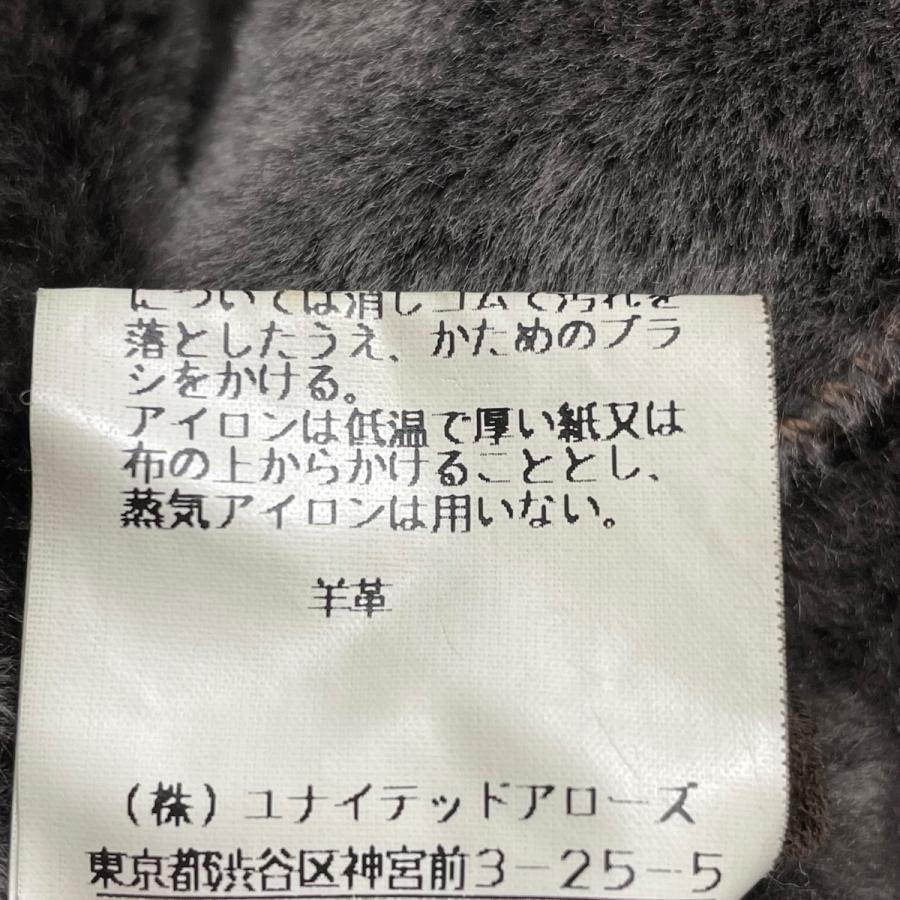 については消しゴムで汚れを
落としたうえ、かためのブラ
シをかける。
アイロンは低温で厚い紙又は
布の上からかけることとし、
蒸気アイロンは用いない。
羊革
(株)ユナイテッドアローズ
東京都渋谷区神宮前3-25-5